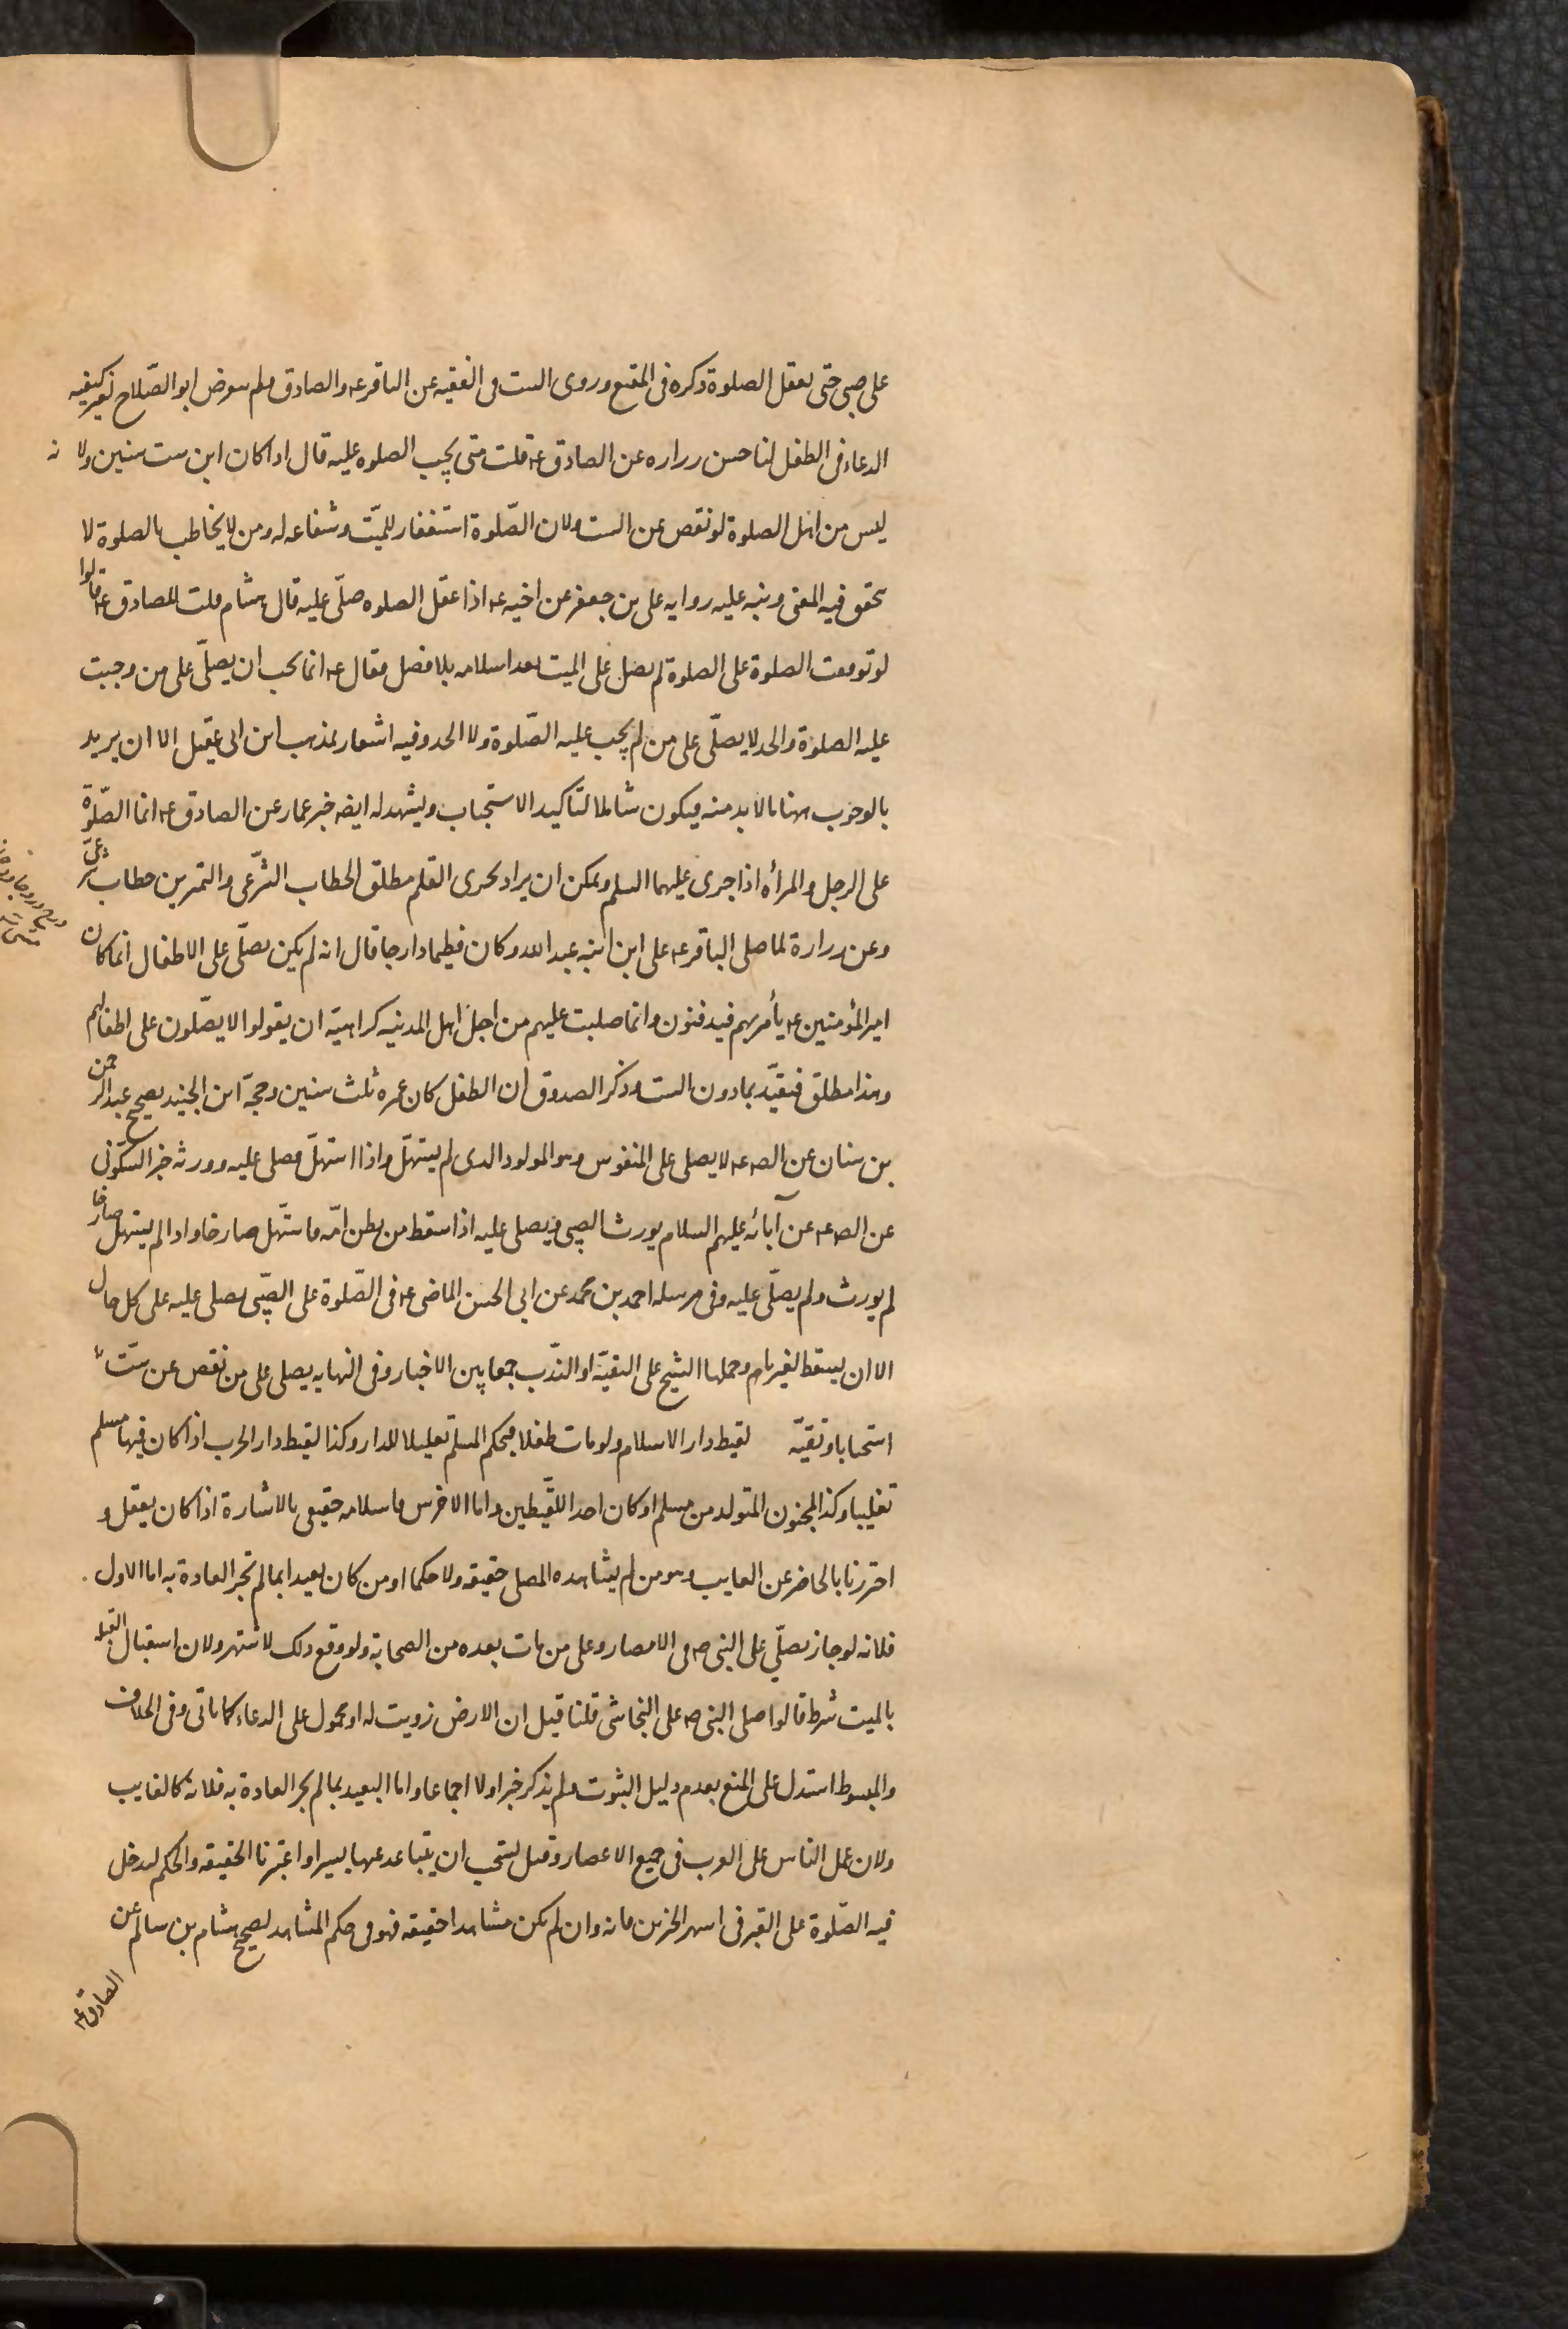 على صبى حتى يعقل الصلوة ذكره فى المقنع وروى الست فى الفقيه عن الباقر عه والصادق ولم يعرض ابو الصّلاح لغير كيفيه
الدعاء فى الطفل لنا حسن زراره عن الصادق عه قلت متى يجب الصلوه عليه قال اذا كان ابن ست سنين ولانه
ليس من اهل الصلوة لو نقص عن الست ولان الصّلوة استغفار للميّت وشفاعه له ومن لا يخاطب بالصلوة لا
يحقق فيه المعنى ونبه عليه روايه على بن جعفر عن اخيه عه اذا عقل الصلوه صلّى عليه قال هشام قلت للصادق عه قالوا
لو توقفت الصلوة على الصلوة لم يصل على الميت بعد اسلامه بلا فصل فقال عه انما يجب ان يصلّى على من وجبت
عليه الصلوة والحد لا يصلّى على من لم يجب عليه الصّلوة ولا الحد وفيه اشعار بمذهب ابن ابى عقيل الا ان يريد
بالوجوب ههنا ما لا بد منه فيكون شاملا لتاكيد الاستحباب ويشهد له ايضه خبر عمار عن الصادق عه انما الصّلوة
على الرجل والمرأه اذا جرى عليهما القلم ويمكن ان يراد بجرى القلم مطلق الخطاب الشّرعى والتمرين خطاب شرعىّ
وعن زرارة لما صلى الباقر عه على ابن ابنه عبد الله وكان فطيما دارجا قال انه لم يكن يصلّى على الاطفال انما كان
امير المؤمنين عه يأمر بهم فيدفنون وانما صليت عليهم من اجل اهل المدينه كراهيّة ان يقولوا لا يصّلون على اطفالهم
وهذا مطلق فيقيّد بما دون الست وذكر الصدوق ان الطفل كان عمره ثلث سنين وحجّة ابن الجنيد صحيح عبد الرحمن
بن سنان عن الصه عه لا يصلى على المنفوس وهو المولود الذى لم يستهلّ واذا استهلّ فصلى عليه وورثه خبر السّكونى
عن الصه عه عن آبائه عليهم السلام يورث الصبى ويصلى عليه اذا سقط من بطن امّه فاستّهل صارخا واذا لم يستهل صارخا
لم يورث ولم يصلّى عليه وفى مرسله احمد بن محمد عن ابى الحسن الماضى عه فى الصّلوة على الصّبى يصلى عليه على كل حال
الا ان يسقط لغير تمام وحملها الشيخ على التقيّة او النّدب جمعا بين الاخبار وفى النهايه يصلى على من نقص عن ستّ
استحبابا وتقيّه لقيط دار الاسلام ولو مات طفلا فبحكم المسلم تغليبا للدار وكذا لقيط دار الحرب اذا كان فيها مسلم
تغليبا وكذا المجنون المتولد من مسلم او كان احد اللّقيطين واما الاخرس فاسلامه حقيقى بالاشارة اذا كان يعقل و
احترزنا بالحاضر عن الغايب وهو من لم يشاهده المصلى حقيقه ولا حكما او من كان بعيدا بما لم تجر العادة به اما الاول
فلانه لو جاز يصلّي على النبى صه فى الامصار وعلى من مات بعده من الصحابة ولو وقع ذلك لاشتهر ولان استقبال القبله
بالميت شرط قالوا صلى النبى صه على النجاشى قلنا قيل ان الارض زويت له او محمول على الدعاء كما ياتى وفى الخلاف
والمبسوط استدل على المنع بعدم دليل الثبوت ولم يذكر خبرا ولا اجماعا واما البعيد بما لم يجر العادة به فلانه كالغايب
ولان عمل الناس على القرب فى جميع الاعصار وقيل يستحب ان يتباعد عنها يسيرا واعتبرنا الحقيقه والحكم ليدخل
فيه الصّلوة على القبر فى اشهر الخبرين فانه وان لم يكن مشاهدا حقيقه فهو فى حكم المشاهد لصحيح هشام بن سالم عن
الصادق عه